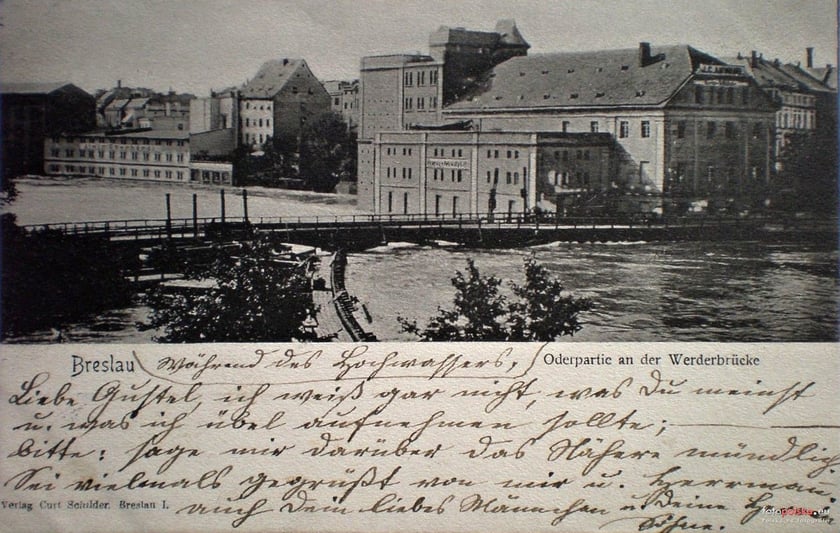 Breslau Während des Hochwassers, Oderpartie an der Werderbrücke
Liebe Gustel, ich weiß gar nicht, was Du meinst
u. was ich übel aufnehmen sollte;
bitte: sage mir darüber das Nähere mündlich
Sei vielmals gegrüßt von mir u. Herrmann,
Verlag Curt Schilder, Breslau I.
auch Dein liebes Männchen u. Deine
Söhne.
fotopolska.eu